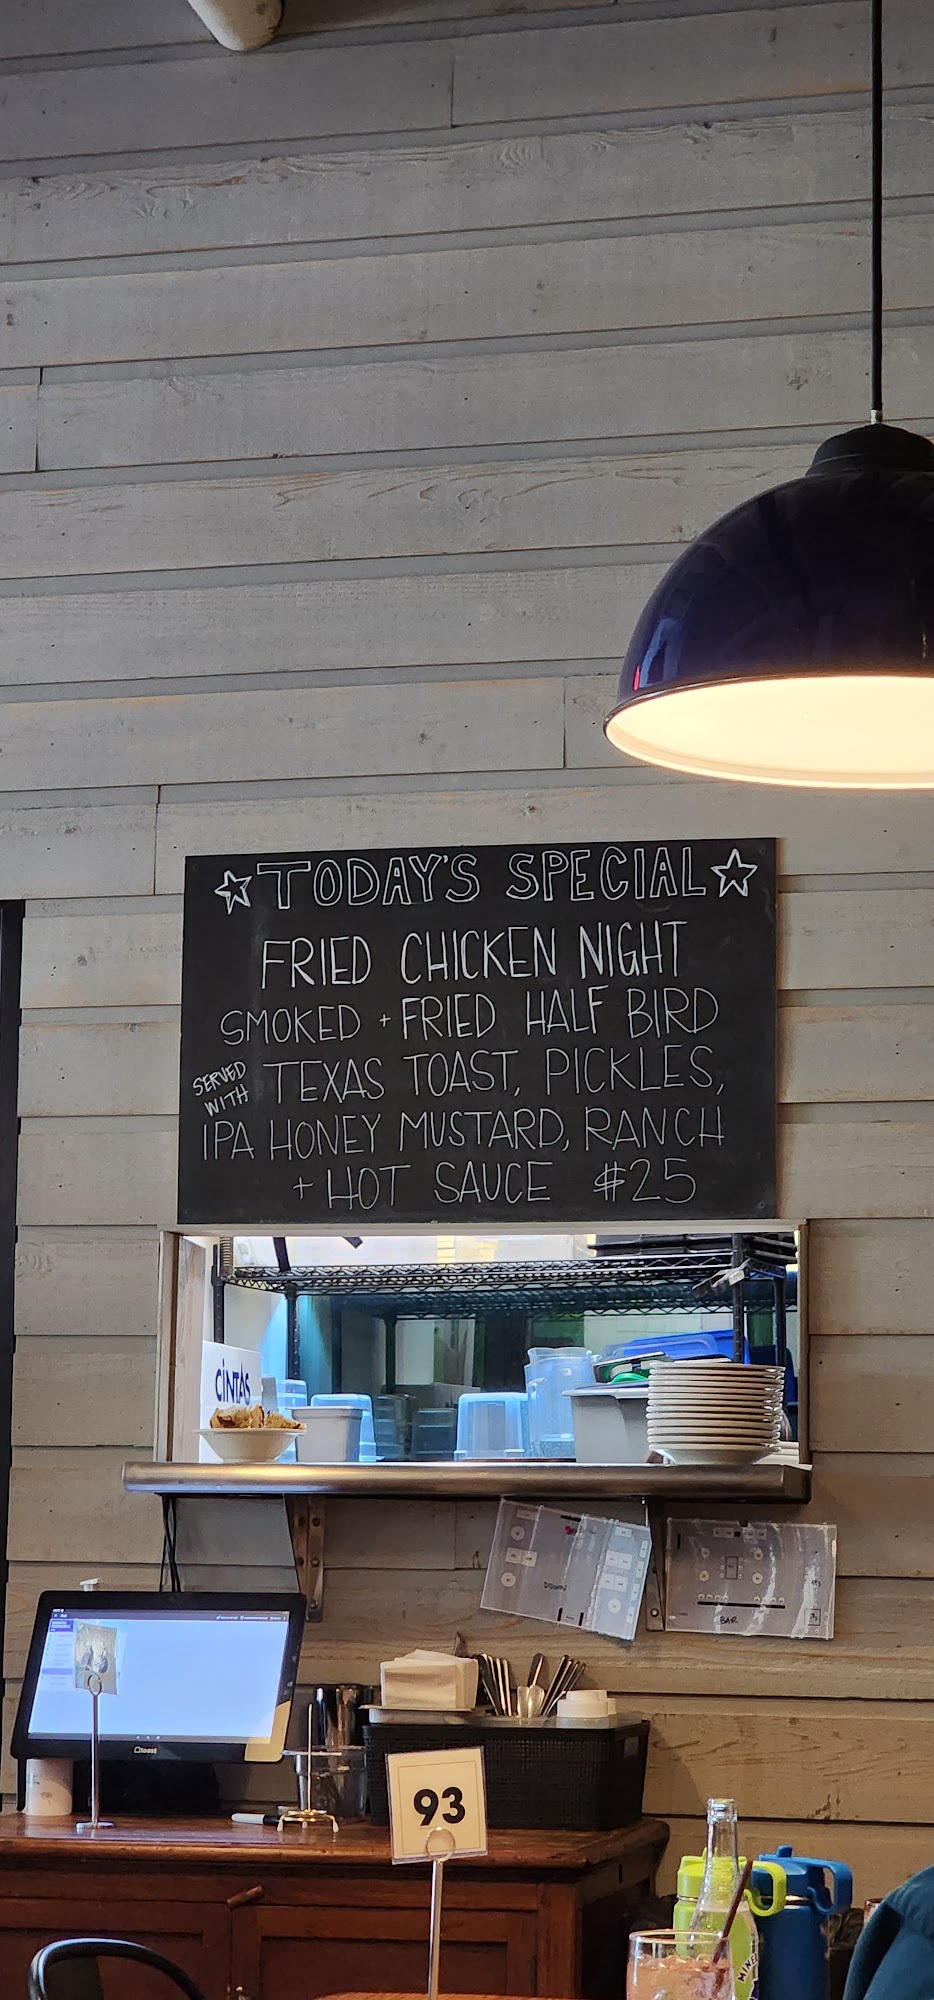 TODAY'S SPECIAL
FRIED CHICKEN NIGHT
SMOKED + FRIED HALF BIRD
SERVED WITH TEXAS TOAST, PICKLES,
IPA HONEY MUSTARD, RANCH
+ HOT SAUCE $25
CINTAS
BAR
toast
93